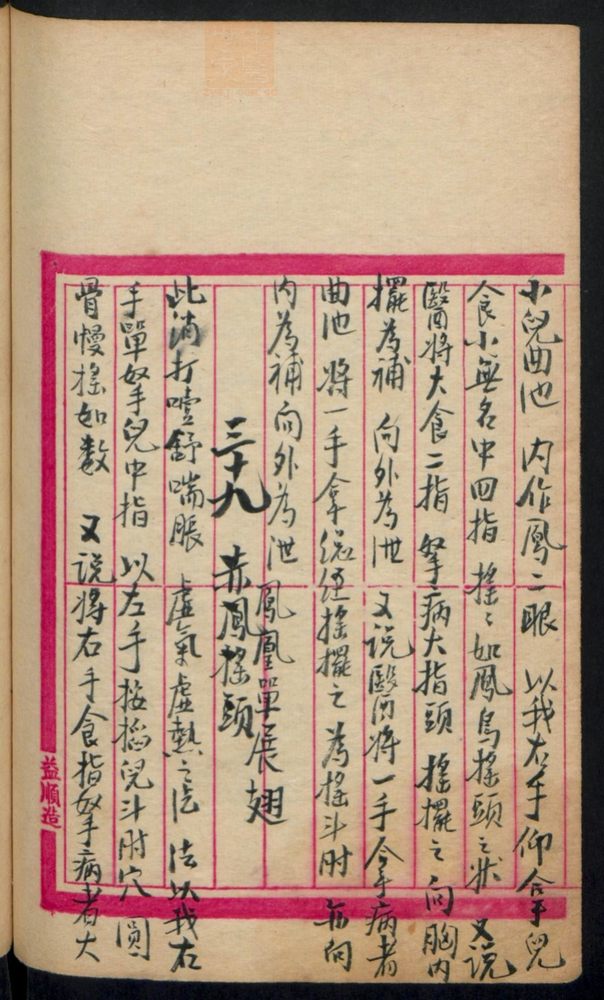 小兒曲池 內作鳳二眼 以我右手仰合拿兒
食小無名中四指 搖〻如鳳鳥搖頭之狀 又說
醫將大食二指 拏病大指頭 搖擺之 向胸內
擺為補 向外為泄 又說醫酒將一手拿病者
曲池 將一手拿總經搖擺之 為搖斗肘 每向
內為補向外為泄
三十九 赤鳳搖頭
鳳凰單展翅
此消打噎舒喘脹 虛氣虛熱之法 法以我右
手單拏兒中指 以左手按搯兒斗肘穴 圓
骨慢搖如數 又說將右手食指拏病者大
益順造